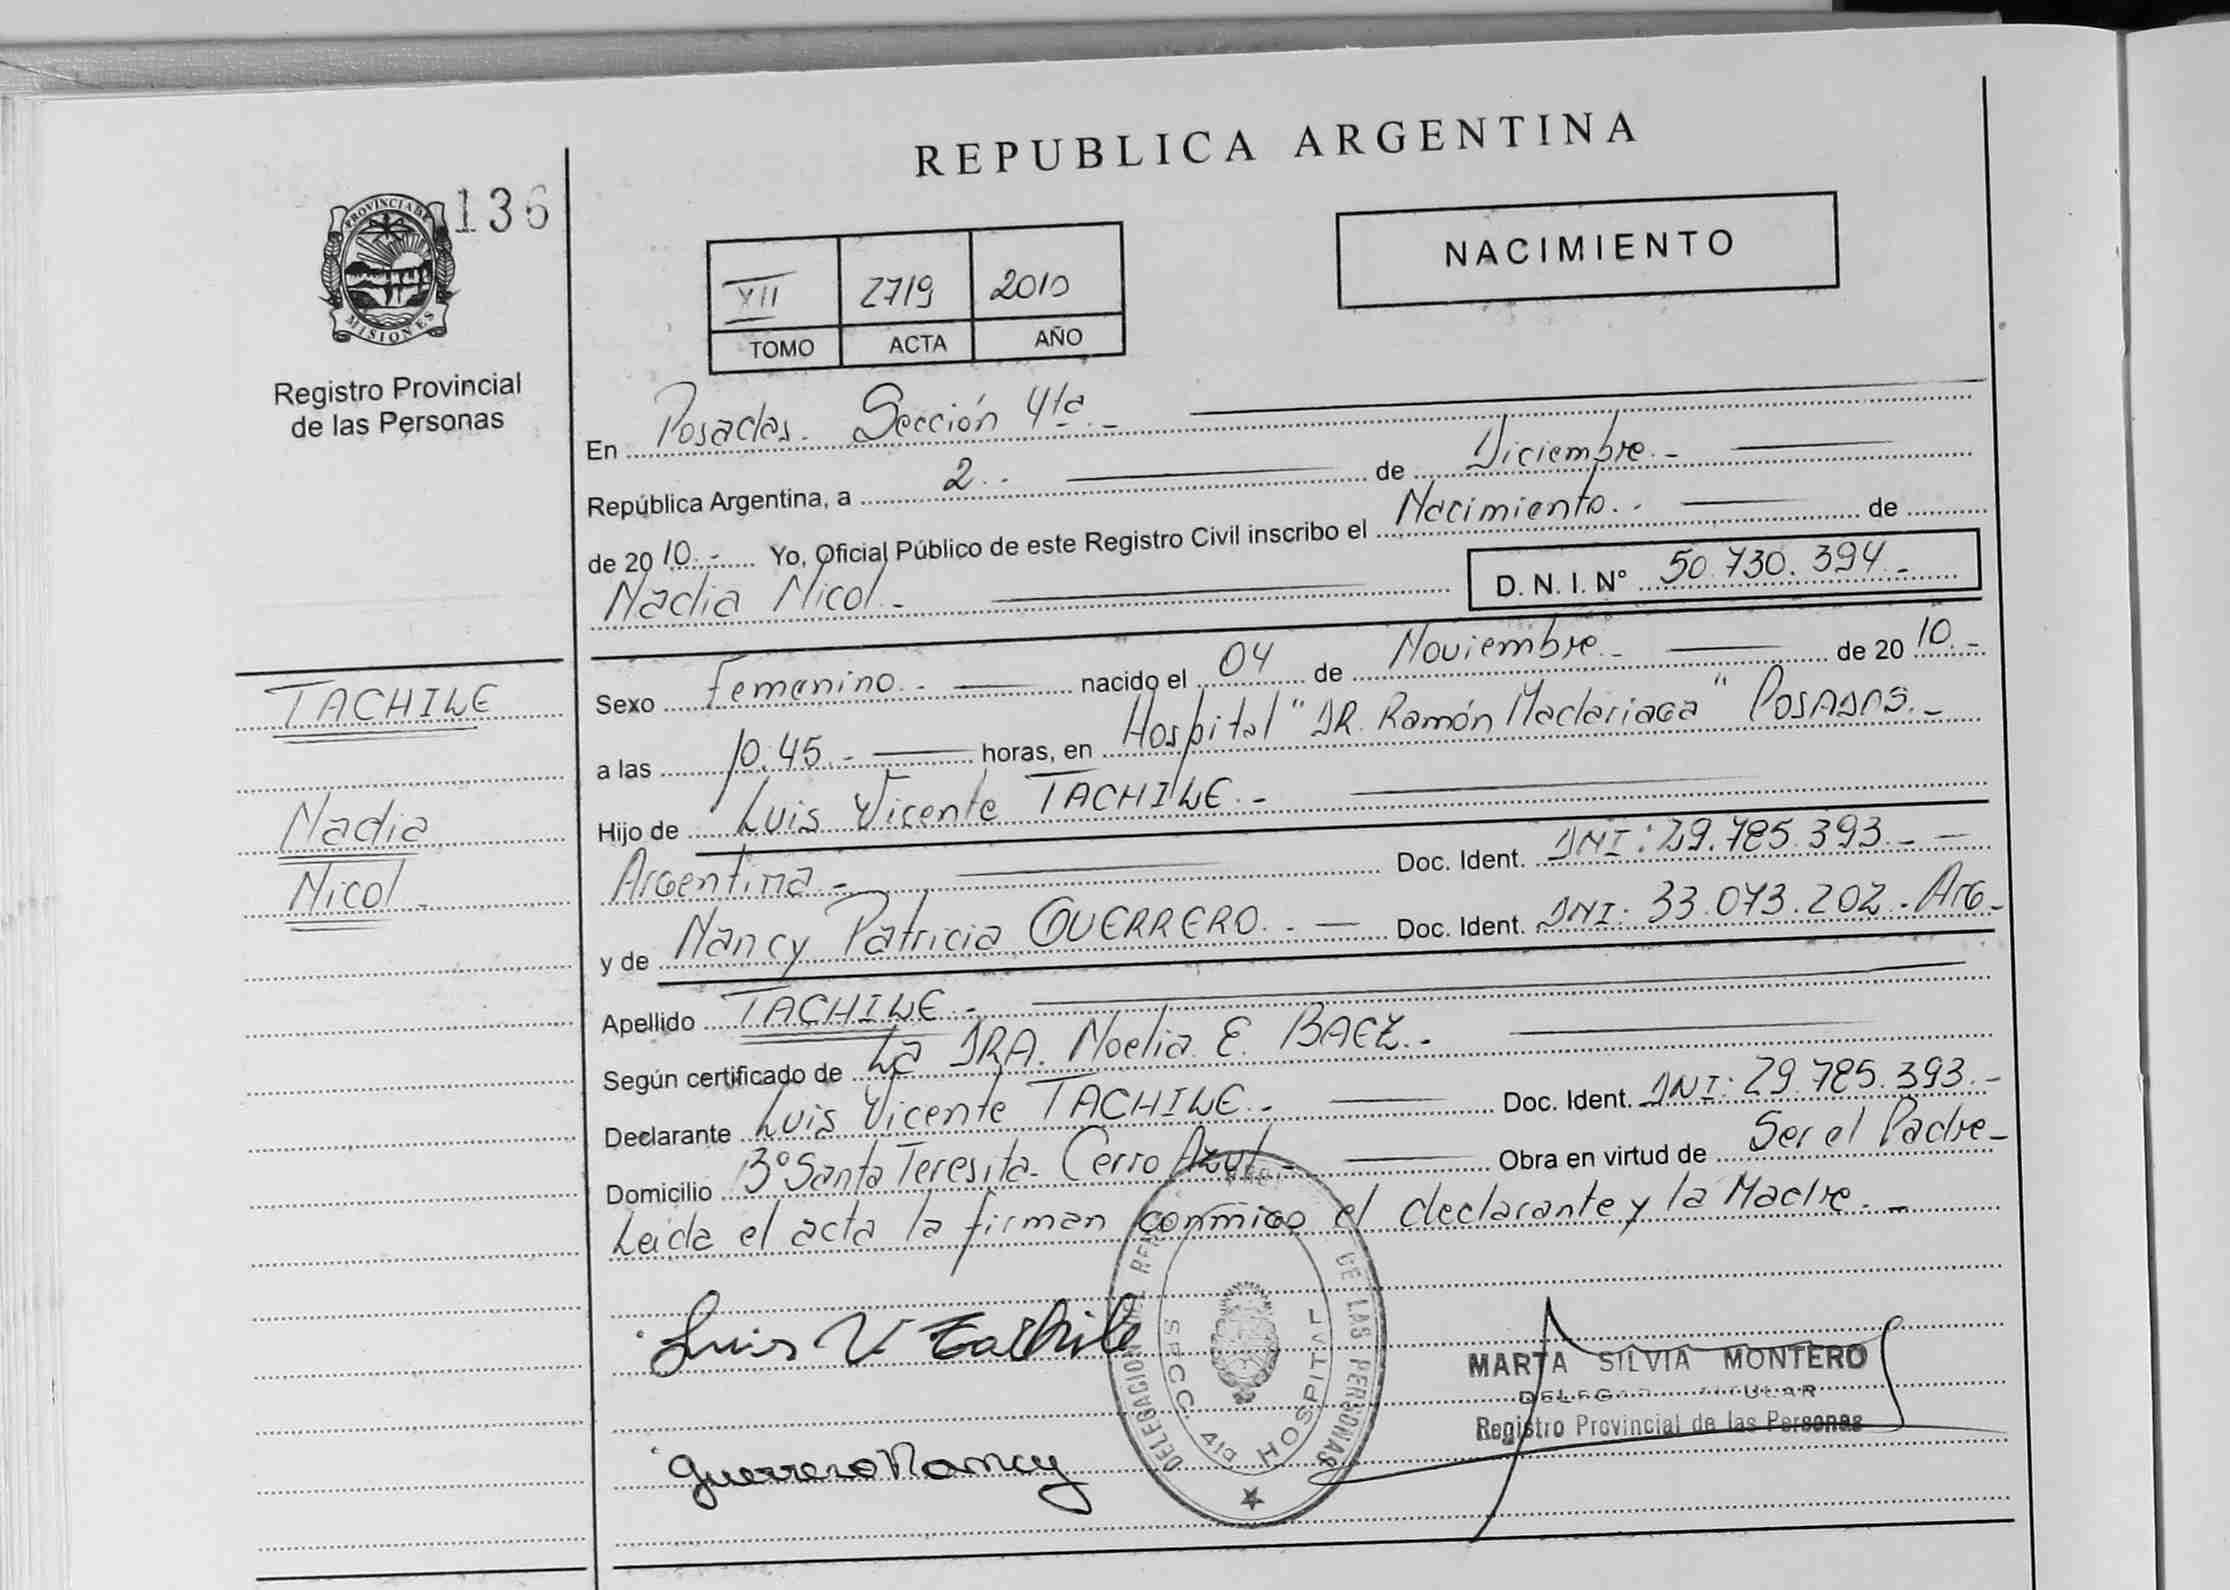 REPUBLICA ARGENTINA
PROVINCIA DE
MISIONES
136
Registro Provincial
de las Personas
NACIMIENTO
XII 2719 2010
TOMO ACTA AÑO
En Posadas. Sección 4ta.-
República Argentina, a 2.- de Diciembre.-
de 2010.- Yo, Oficial Público de este Registro Civil inscribo el Nacimiento.- de
Nadia Nicol.- D. N. I. Nº 50.730.394.-
TACHILE
Nadia
Nicol.-
Sexo Femenino.- nacido el 04 de Noviembre.- de 2010.-
a las 10.45.- horas, en Hospital "DR. Ramón Madariaga" POSADAS.-
Hijo de Luis Vicente TACHILE.-
Argentina.- Doc. Ident. DNI: 29.785.393.-
y de Nancy Patricia GUERRERO.- Doc. Ident. DNI: 33.073.202.- Arg-
Apellido TACHILE.-
Según certificado de La DRA. Noelia E. BAEZ.-
Declarante Luis Vicente TACHILE.- Doc. Ident. DNI: 29.785.393.-
Domicilio Bº Santa Teresita- Cerro Azul.- Obra en virtud de Ser el Padre-
Leida el acta la firman conmigo el declarante y la Madre.-
Luis V Tachile
Guerrero Nancy
DELEGACION DE LAS PERSONAS
SECC. 4ta HOSPITAL
MARTA SILVIA MONTERO
Registro Provincial de las Personas